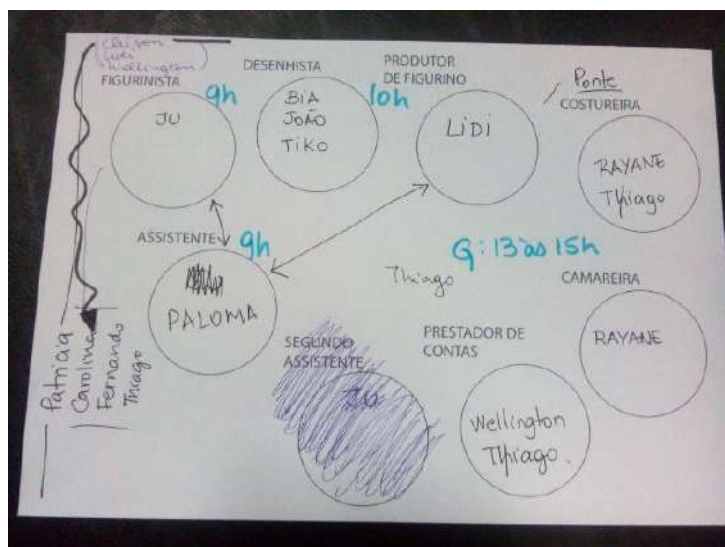 Wellington
FIGURINISTA
9h
JU
DESENHISTA
10h
BIA
JOÃO
TIKO
PRODUTOR
DE FIGURINO
LIDI
Ponte
COSTUREIRA
RAYANE
Thiago
ASSISTENTE
9h
PALOMA
Thiago
G: 13 às 15h
CAMAREIRA
RAYANE
SEGUNDO
ASSISTENTE
PRESTADOR DE
CONTAS
Wellington
Thiago.
Patricia
Carolina
Fernando
Thiago